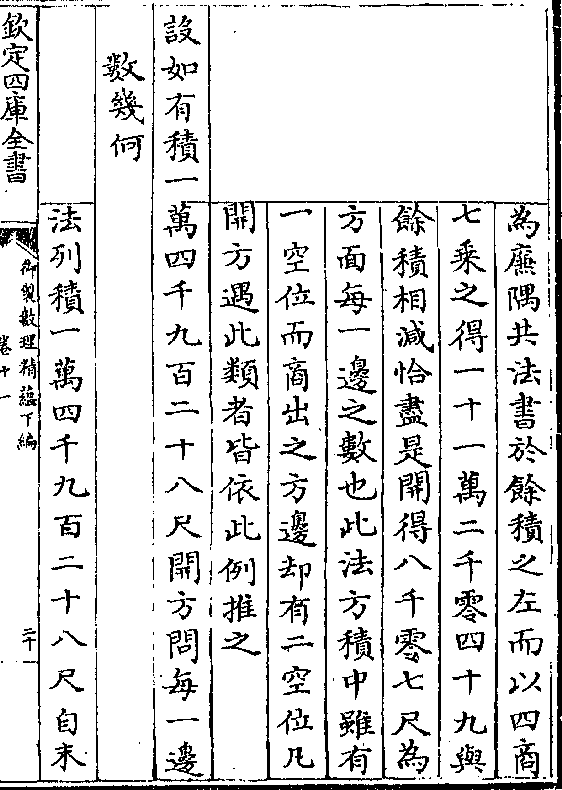 為廉隅共法書於餘積之左而以四商
七乘之得一十一萬二千零四十九與
餘積相減恰盡是開得八千零七尺為
方面每一邊之數也此法方積中雖有
一空位而商出之方邊却有二空位凡
開方遇此類者皆依此例推之
設如有積一萬四千九百二十八尺開方問每一邊
數幾何
法列積一萬四千九百二十八尺自末
欽定四庫全書
御製數理精蘊下編
卷十一
二十一